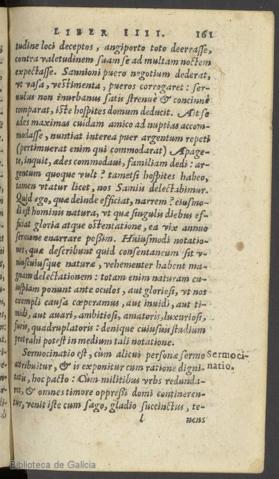 LIBER IIII. 161
tudine loci deceptos, angiporto toto deerrasse,
contra valetudinem suam se ad multam noctem
expectasse. Sannioni puero negotium dederat,
vt vasa, vestimenta, pueros corrogaret: ser-
uulus non inurbanus satis strenuè & concinnè
comparat, iste hospites domum deducit. Ait se
ædes maximas cuidam amico ad nuptias accom-
modasse, nuntiat interea puer argentum repeti
(pertimuerat enim qui commodarat) Apage-
te, inquit, ædes commodaui, familiam dedi: ar-
gentum quoque vult? tametsi hospites habeo,
tamen vtatur licet, nos Samiis delectabimur.
Quid ego, quæ deinde efficiat, narrem? eiusmo-
di est hominis natura, vt quæ singulis diebus ef-
ficiat gloria atque ostentatione, ea vix annuo
sermone enarrare possim. Huiusmodi notatio-
nes, quæ describunt quid consentaneum sit v-
niuscuiusque naturæ, vehementer habent ma-
gnam delectationem: totam enim naturam cu-
iuspiam ponunt ante oculos, aut gloriosi, vt nos
exempli causa cœperamus, aut inuidi, aut ti-
midi, aut auari, ambitiosi, amatoris, luxuriosi,
furis, quadruplatoris: denique cuiusuis studium
protrahi potest in medium tali notatione.
Sermocinatio est, cum alicui personæ sermo
attribuitur, & is exponitur cum ratione digni-
tatis, hoc pacto: Cùm militibus vrbs redunda-
ret, & omnes timore oppressi domi contineren-
tur, venit iste cum sago, gladio succinctus, te-
l nens
Sermoci-
natio.
Biblioteca de Galicia